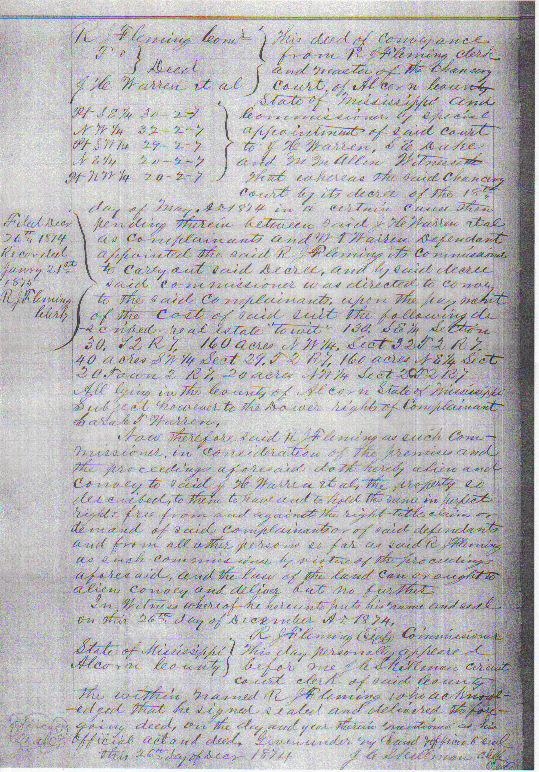 R J Fleming Comr
To } Deed
J He Warren et al
This deed of conveyance
from R J Fleming clerk
and master of the Chancery
court, of Alcorn County
State of Mississippi and
Commissioner by special
appointment of said court
to J He Warren, S E Duke
and M M Allen Witnesseth
That whereas the said Chancery
court by its decree of the 18th
Pt S E 1/4 30-2-7
N W 1/4 32-2-7
Pt S W 1/4 29-2-7
N E 1/4 20-2-7
Pt N W 1/4 20-2-7
Filed Decr
26th, 1874
Recorded
January 21st
1875
R J Fleming
Clerk
day of May, AD 1874 in a certain cause then
pending therein between said J He Warren et al
as complainants and W T Warren Defendant
appointed the said R J Fleming its Commissioner
to carry out said Decree, and by said decree
said commissioner was directed to convey
to the said complainants, upon the payment
of the cost of said suit the following de
scribed real estate to wit 130, S E 1/4 Section
30, T 2 R 7, 160 acres N W 1/4, Sect 32 T 2 R 7
40 acres S W 1/4 Sect 29, T 2 R 7, 160 acres N E 1/4 Sect
20 Town 2 R 7, 20 acres N W 1/4 Sect 20 T 2 R 7
All lying in the County of Alcorn State of Mississippi
Subject however to the Dower rights of Complainant
Sarah Warren.
Now therefore said R J Fleming as such Com-
missioner, in consideration of the premises and
the proceedings aforesaid doth hereby alien and
convey to said J He Warren et als, the property so
described, to them to have and to hold the same in perfect
right free from and against the right title claim or
demand of said complainants or of said defendants
and from all other persons so far as said R J Fleming
as such commissioner by virtue of the proceedings
aforesaid, and the law of the land can or ought to
alien convey and deliver but no further
In Witness whereof he hereunto puts his name and seal
on this 26th day of December AD 1874.
R J Fleming (seal) Commissioner
State of Mississippi }
Alcorn County }
This day personally appeared
before me circuit
court clerk of said County
the within named R J Fleming who acknowl
edged that he signed sealed and delivered the fore
going deed, on the day and year therein mentioned as his
official act and deed. Given under my hand and official seal
this 26th day of Decr 1874